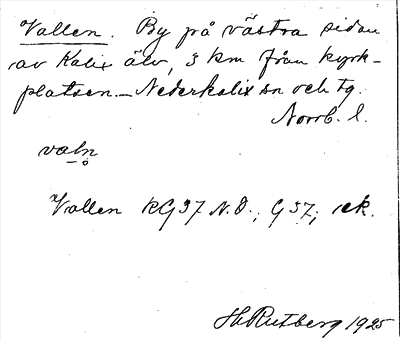 Vallen. By på västra sidan
av Kalix älv, 3 km från kyrk-
platsen. – Nederkalix sn och tg.
Norrb. l.
valn̥
Vallen KG 37 N.O.; G 37; ek.
Hj Rutberg 1925